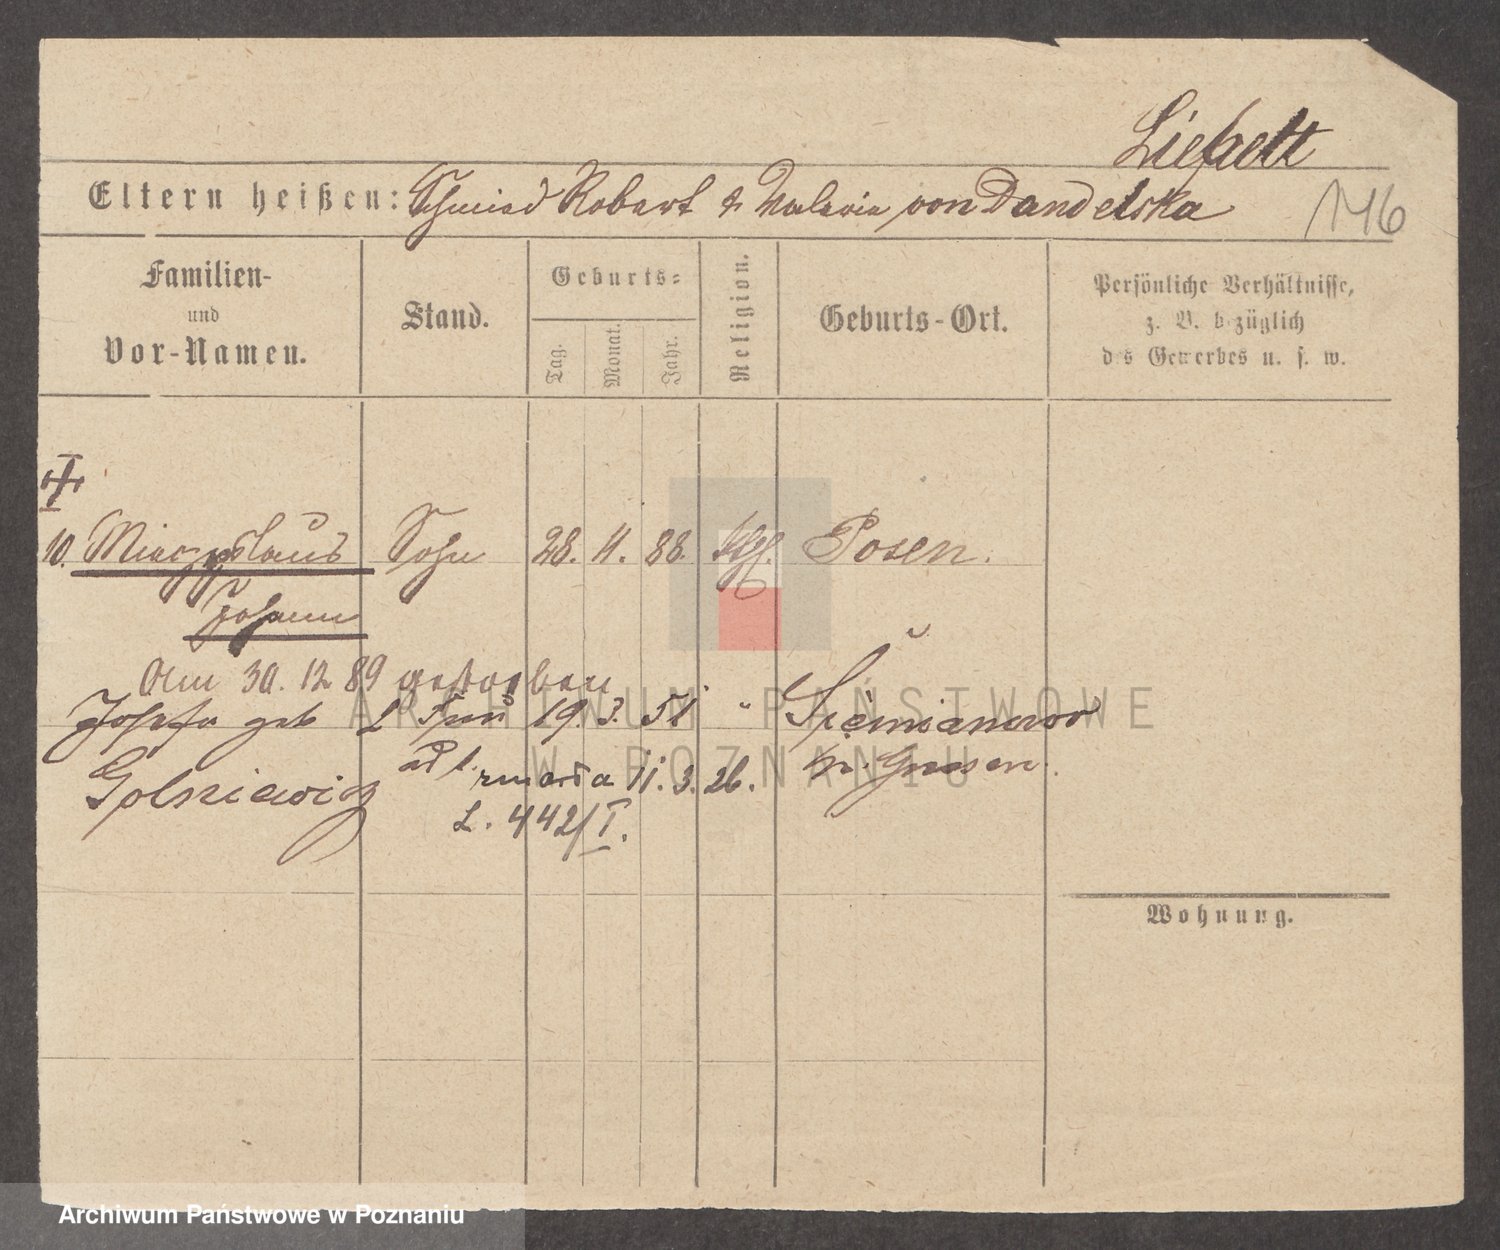 Liepelt
Eltern heißen: Schmied Robert & Valeria von Dandelska
146
Familien-
und
Vor-Namen.
Stand.
Geburts-
Tag.
Monat.
Jahr.
Religion.
Geburts-Ort.
Persönliche Verhältnisse,
z. B. bezüglich
des Gewerbes u. s. w.
10. Mieczyslaus Sohn 28. 11. 88. Posen.
Johann
Am 30. 12 89 gestorben
Josefa geb 19. 3. 51 "
Golniewicz zmarła 11. 3. 26. Gnesen.
L. 442/I.
Wohnung.
ARCHIWUM PAŃSTWOWE
W POZNANIU
Archiwum Państwowe w Poznaniu